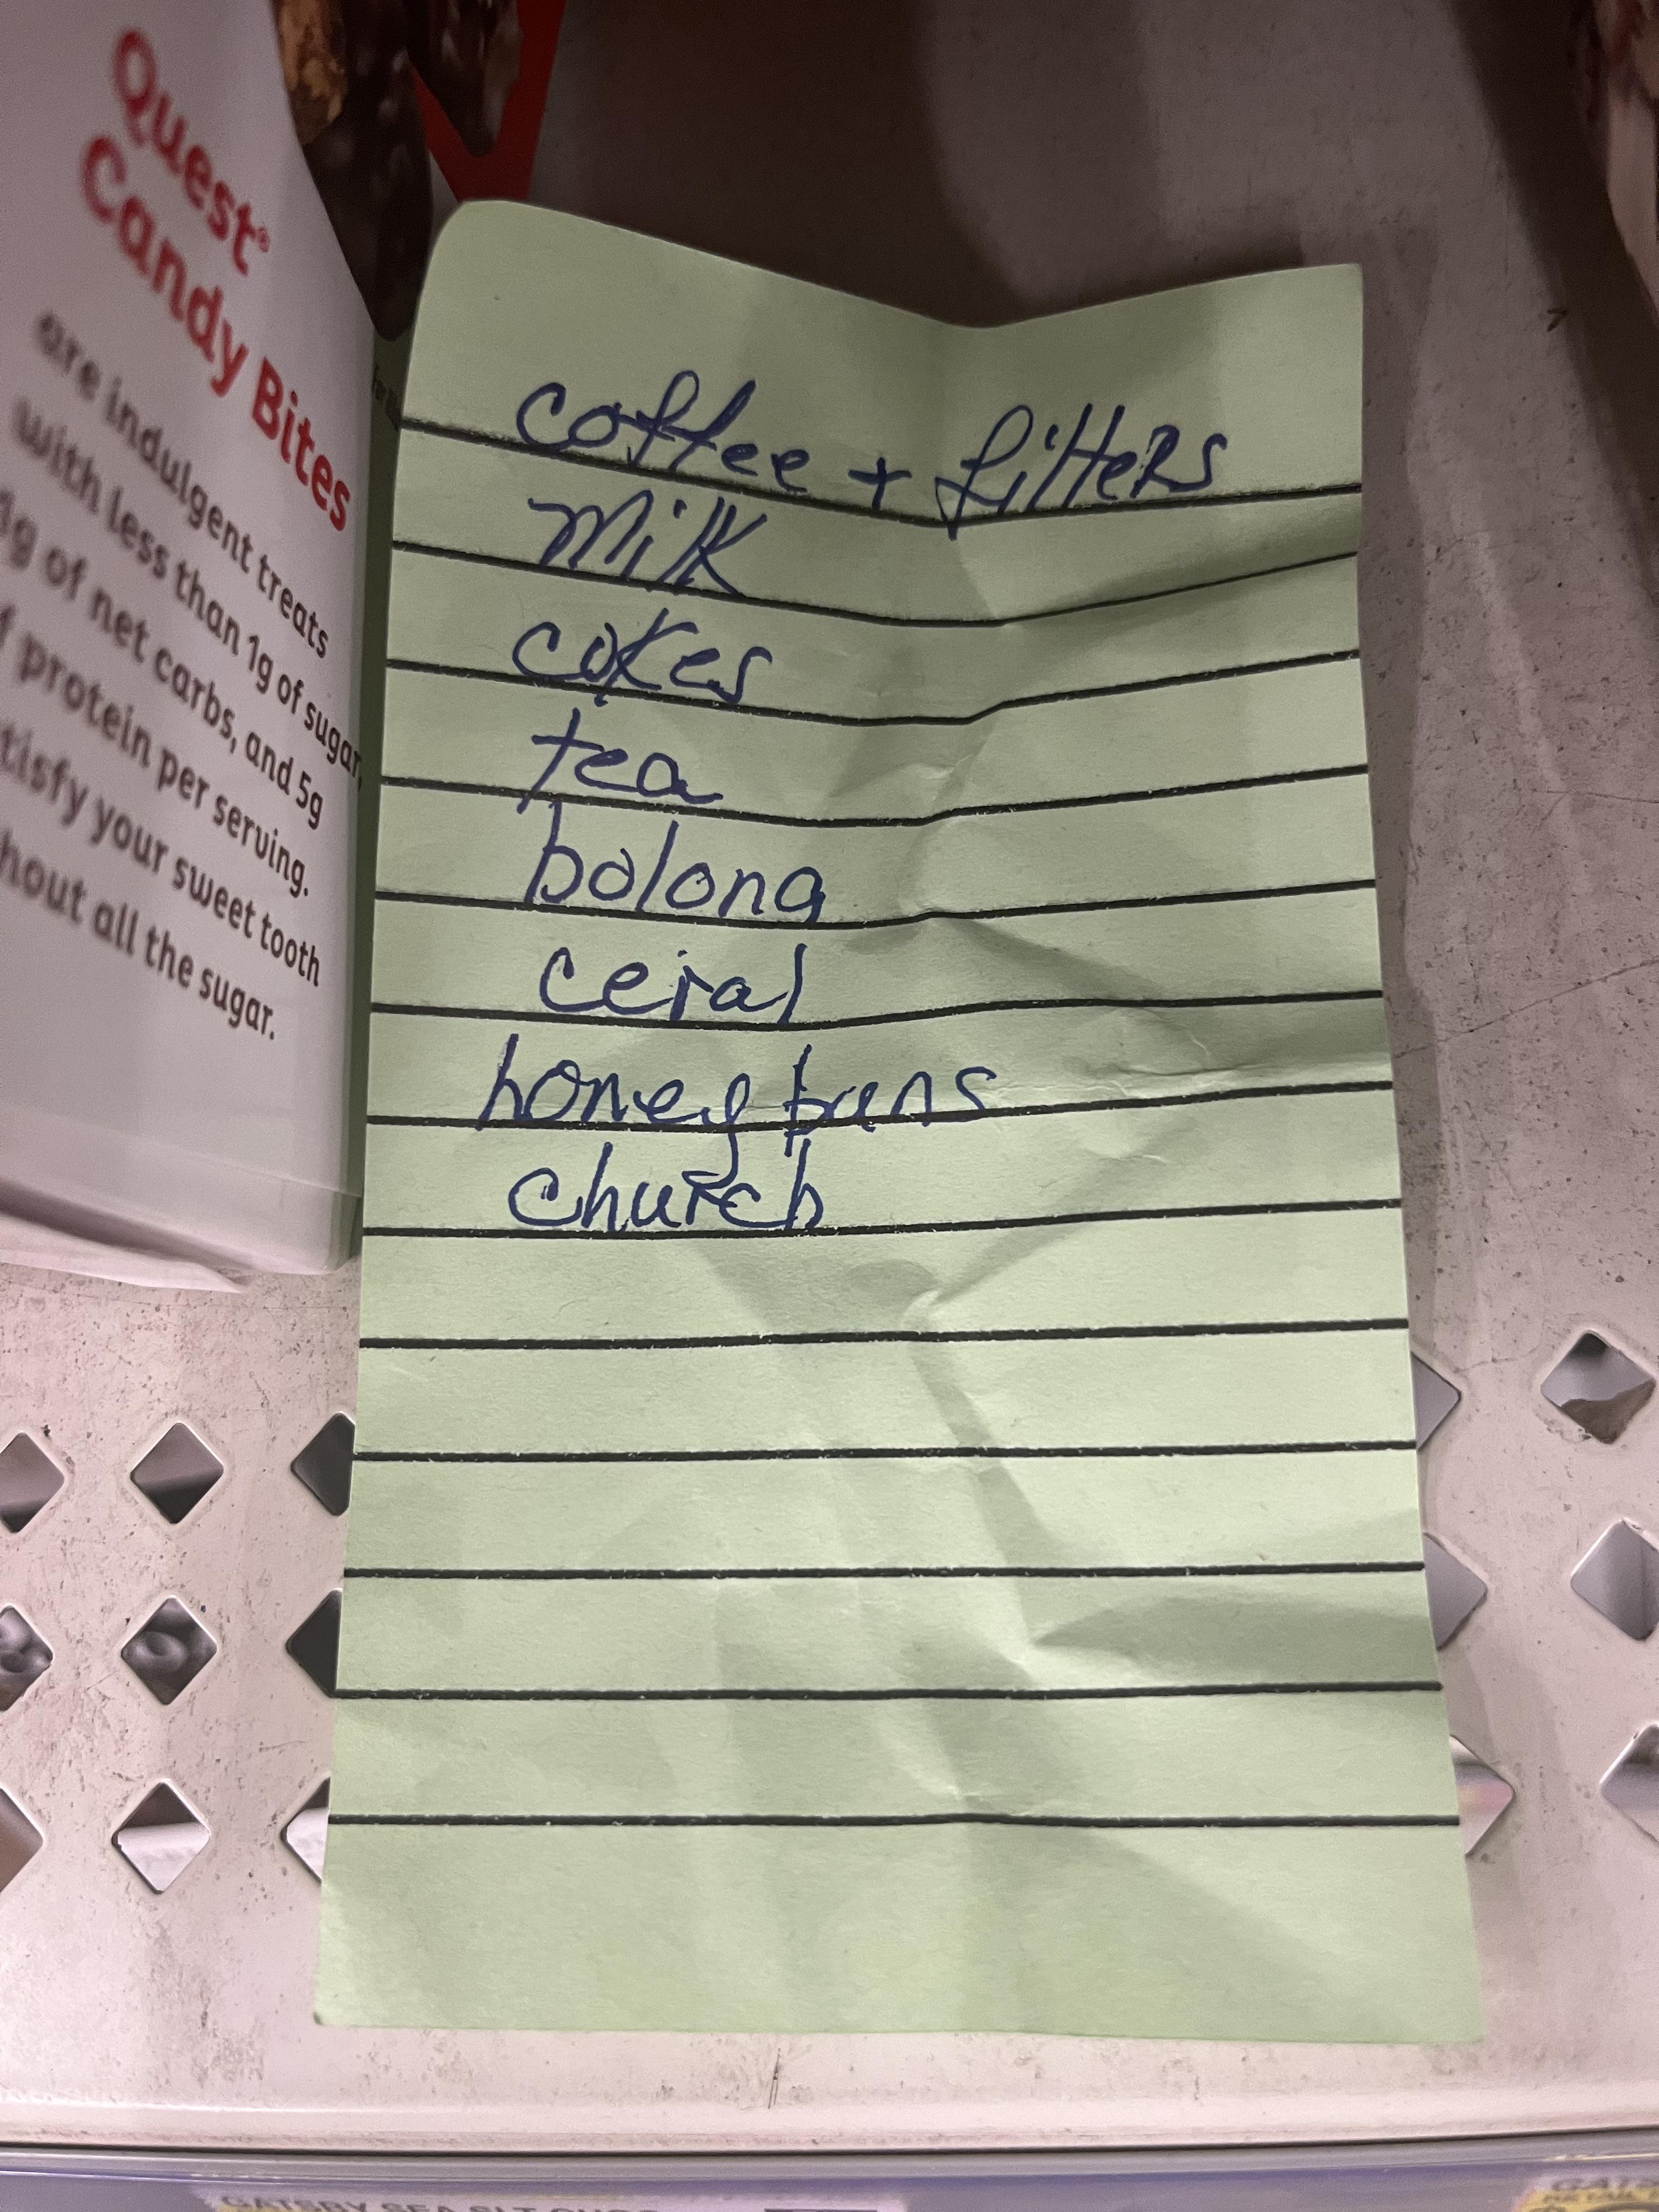 Quest®
Candy Bites
are indulgent treats
with less than 1g of sugar,
g of net carbs, and 5g
protein per serving.
tisfy your sweet tooth
hout all the sugar.
coffee + filters
milk
cokes
tea
bolona
ceral
honey buns
church
GATSBY SEA SLT